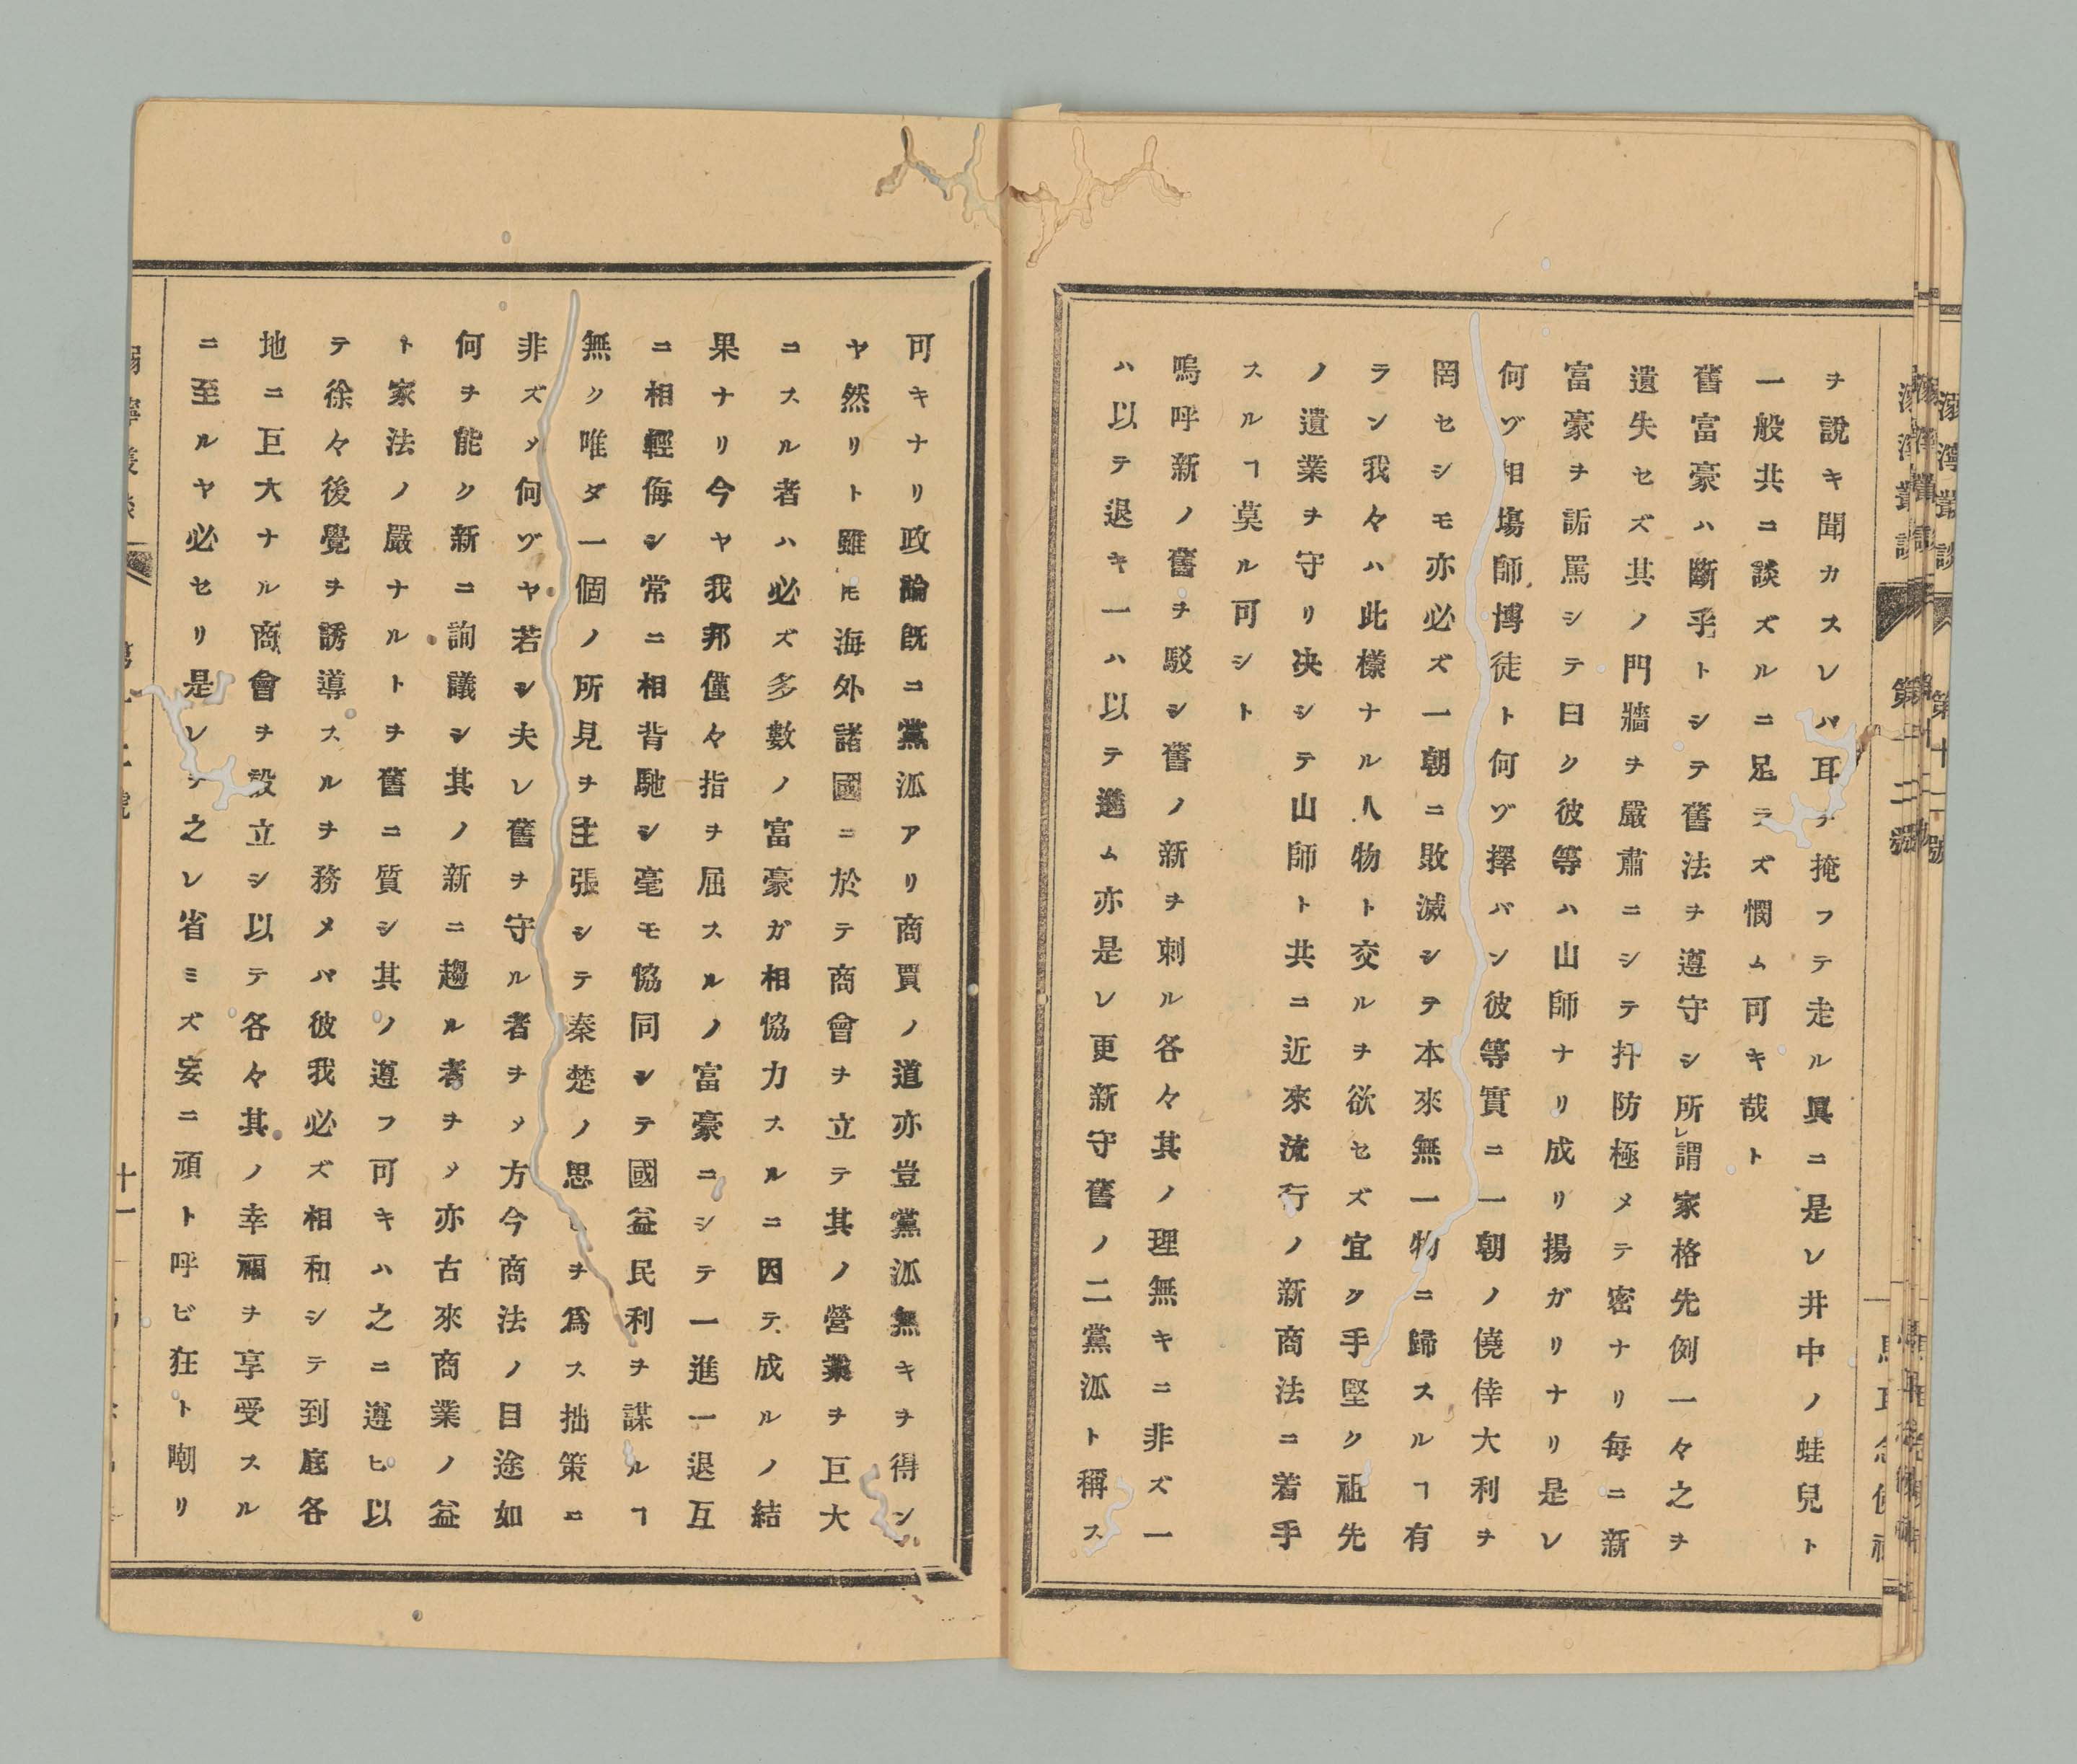 ヲ說キ聞カスレバ耳ヲ掩フテ走ル異ニ是レ井中ノ蛙兒ト
一般共ニ談ズルニ足ラズ憫ム可キ哉ト
舊富豪ハ斷乎トシテ舊法ヲ遵守シ所レ謂家格先例一々之ヲ
遺失セズ其ノ門牆ヲ嚴肅ニシテ扞防極メテ密ナリ每ニ新
富豪ヲ詬罵シテ曰ク彼等ハ山師ナリ成リ揚ガリナリ是レ
何ヅ相塲師博徒ト何ヅ擇バン彼等實ニ一朝ノ僥倖大利ヲ
罔セシモ亦必ズ一朝ニ敗滅シテ本來無一物ニ歸スルヿ有
ラン我々ハ此樣ナル人物ト交ルヲ欲セズ宜ク手堅ク祖先
ノ遺業ヲ守リ决シテ山師ト共ニ近來流行ノ新商法ニ着手
スルヿ莫ル可シト
嗚呼新ノ舊ヲ駁シ舊ノ新ヲ刺ル各々其ノ理無キニ非ズ一
ハ以テ退キ一ハ以テ進ム亦是レ更新守舊ノ二黨派ト稱ス
可キナリ政論既ニ黨派アリ商賈ノ道亦豈黨派無キヲ得ン
ヤ然リト雖𪜈海外諸國ニ於テ商會ヲ立テ其ノ營業ヲ巨大
ニスル者ハ必ズ多數ノ富豪ガ相協力スルニ因テ成ルノ結
果ナリ今ヤ我邦僅々指ヲ屈スルノ富豪ニシテ一進一退互
ニ相輕侮シ常ニ相背馳シ毫モ協同シテ國益民利ヲ謀ルヿ
無ク唯ダ一個ノ所見ヲ主張シテ秦楚ノ思ヒヲ爲ス拙策ニ
非ズメ何ヅヤ若シ夫レ舊ヲ守ル者ヲメ方今商法ノ目途如
何ヲ能ク新ニ詢議シ其ノ新ニ趨ル者ヲメ亦古來商業ノ益
ト家法ノ嚴ナルトヲ舊ニ質シ其ノ遵フ可キハ之ニ遵ヒ以
テ徐々後覺ヲ誘導スルヲ務メバ彼我必ズ相和シテ到底各
地ニ巨大ナル商會ヲ設立シ以テ各々其ノ幸福ヲ享受スル
ニ至ルヤ必セリ是レヲ之レ省ミズ妄ニ頑ト呼ビ狂ト嘲リ
十一